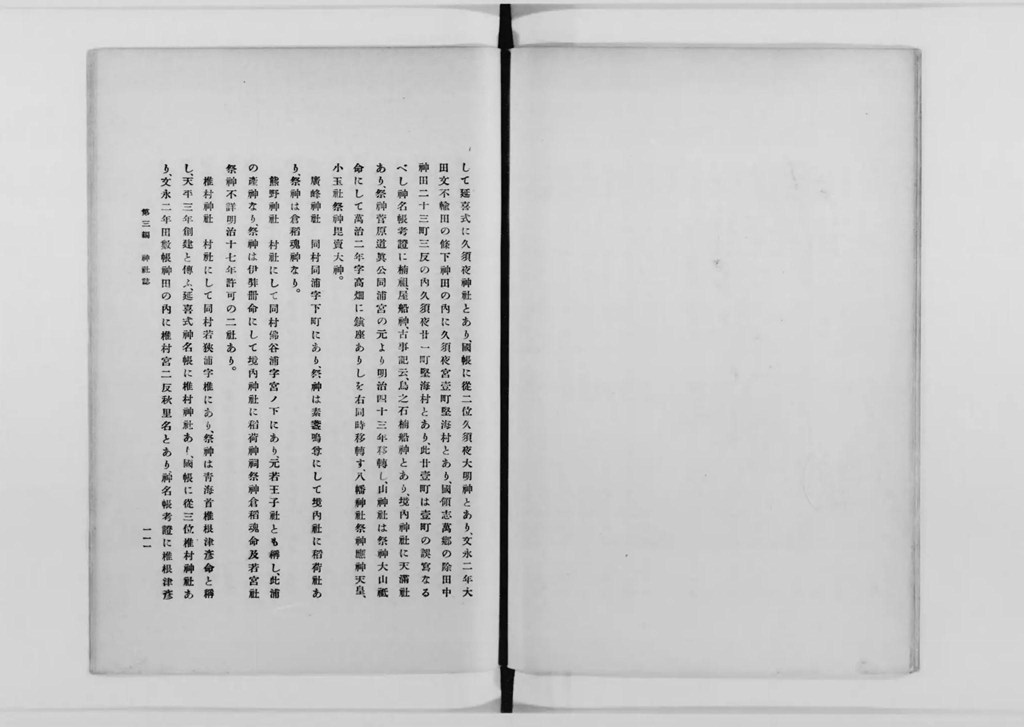 して延喜式に久須夜神社とあり、國帳に從二位久須夜大明神とあり、文永二年大
田文不輸田の條下神田の内に久須夜宮壹町堅海村とあり、國領志萬鄕の除田中
神田二十三町三反の内久須夜廿一町堅海村とあり、此廿壹町は壹町の誤寫なる
べし神名帳考證に楠祖、屋船神、古事記云、鳥之石楠船神とあり、境内神社に天滿社
あり祭神菅原道眞公同浦宮の元より明治四十三年移轉し、山神社は祭神大山祗
命にして萬治二年字高畑に鎭座ありしを右同時移轉す、八幡神社祭神應神天皇、
小玉社祭神毘賣大神。
廣峰神社 同村同浦字下町にあり、祭神は素盞嗚尊にして境内社に稻荷社あ
り、祭神は倉稻魂神なり。
熊野神社 村社にして同村佛谷浦字宮ノ下にあり、元若王子社とも稱し、此浦
の產神なり、祭神は伊弉冊命にして境内神社に稻荷神祠祭神倉稻魂命及若宮社
祭神不詳明治十七年許可の二社あり。
椎村神社 村社にして同村若狹浦字椎にあり、祭神は青海首椎根津彥命と稱
し、天平三年創建と傳ふ、延喜式神名帳に椎村神社あり、國帳に從三位椎村神社あ
り、文永二年田數帳神田の内に椎村宮二反秋里名とあり、神名帳考證に椎根津彥
第三編 神社誌
一一一